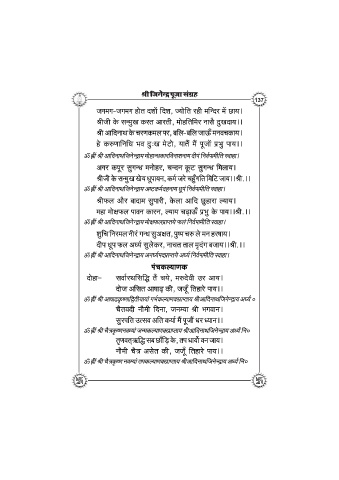 श्री जिनेन्द्र पूजा संग्रह
137
जगमग-जगमग होत दशों दिश, ज्योति रही मन्दिर में छाय।
श्रीजी के सन्मुख करत आरती, मोहतिमिर नासै दुखदाय।।
श्री आदिनाथ के चरणकमल पर, बलि-बलि जाऊँ मनवचकाय।
हे करुणानिधि भव दुःख मेटो, यातैं मैं पूजों प्रभु पाय।।
ॐ ह्रीं श्री आदिनाथजिनेन्द्राय मोहान्धकारविनाशनाय दीपं निर्वपामीति स्वाहा।
अगर कपूर सुगन्ध मनोहर, चन्दन कूट सुगन्ध मिलाय।
श्रीजी के सन्मुख खेय धूपायन, कर्म जरे चहुँगति मिटि जाय।।श्री.।।
ॐ ह्रीं श्री आदिनाथजिनेन्द्राय अष्टकर्मदहनाय धूपं निर्वपामीति स्वाहा।
श्रीफल और बादाम सुपारी, केला आदि छुहारा ल्याय।
महा मोक्षफल पावन कारन, ल्याय चढ़ाऊँ प्रभु के पाय।।श्री.।।
ॐ ह्रीं श्री आदिनाथजिनेन्द्राय मोक्षफलप्राप्तये फलं निर्वपामीति स्वाहा।
शुचि निरमल नीरं गन्ध सुअक्षत, पुष्प चरु ले मन हरषाय।
दीप धूप फल अर्घ्य सुलेकर, नाचत ताल मृदंग बजाय।।श्री.।।
ॐ ह्रीं श्री आदिनाथजिनेन्द्राय अनर्घ्यपदप्राप्तये अर्घ्यं निर्वपामीति स्वाहा।
पंचकल्याणक
दोहा- सर्वारथसिद्धि तैं चये, मरुदेवी उर आय।
दोज असित आषाढ़ की, जजूँ तिहारे पाय।।
ॐ ह्रीं श्री आषाढ़कृष्णद्वितीयायां गर्भकल्याणकप्राप्ताय श्रीआदिनाथजिनेन्द्राय अर्घ्यं ०
चैतवदी नौमी दिना, जनम्या श्री भगवान।
सुरपति उत्सव अति कर्या मैं पूजौं धर ध्यान।।
ॐ ह्रीं श्री चैत्रकृष्णनवम्यां जन्मकल्याणकप्राप्ताय श्रीआदिनाथजिनेन्द्राय अर्घ्यं नि०
तृणवत् ऋद्धि सब छाँड़ि के, तप धार्यो वन जाय।
नौमी चैत्र असेत की, जजूँ तिहारे पाय।।
ॐ ह्रीं श्री चैत्रकृष्ण नवम्यां तपकल्याणकप्राप्ताय श्रीआदिनाथजिनेन्द्राय अर्घ्यं नि०